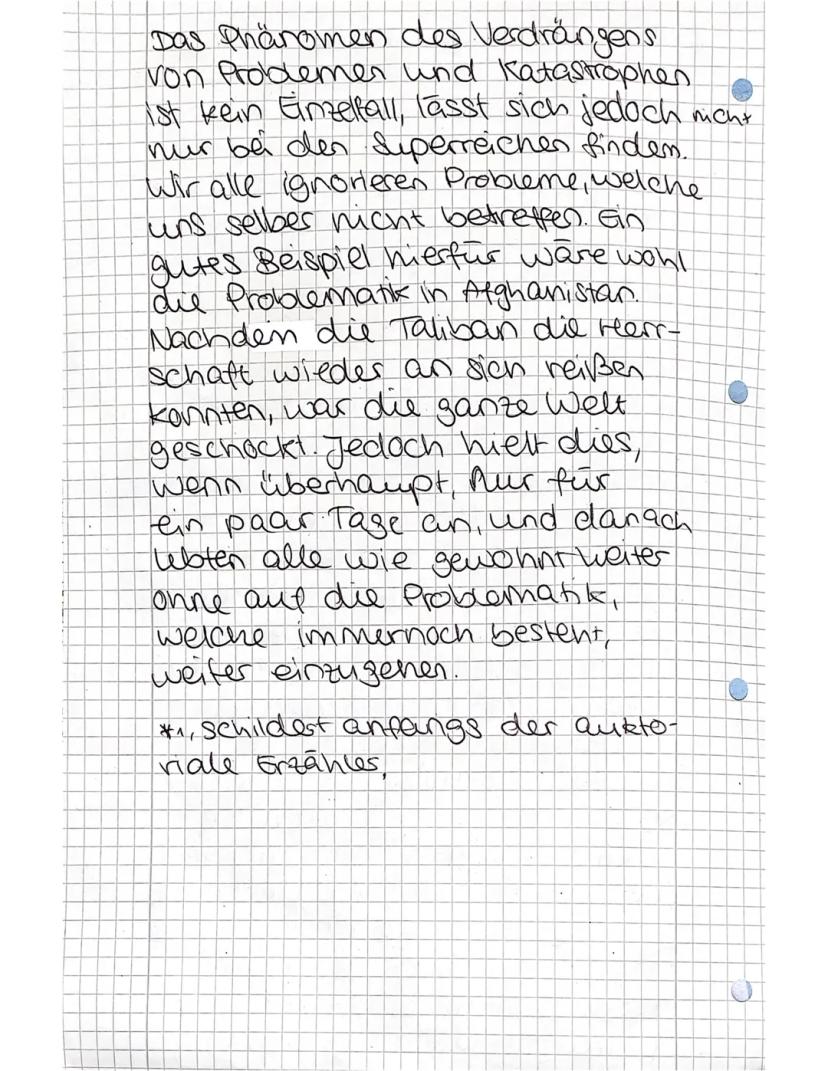 Das Phänomen des Verdrängens
von Problemen und Katastrophen
ist kein Einzelfall, lässt sich jedoch nicht
nur bei den Superreichen finden.
Wir alle ignorieren Probleme, welche
uns selber nicht betreffen. Ein
gutes Beispiel hierfür wäre wohl
die Problematik in Afghanistan.
Nachdem die Taliban die Herr-
schaft wieder an sich reißen
konnten, war die ganze Welt
geschockt. Jedoch hielt dies,
wenn überhaupt, nur für
ein paar Tage an, und danach
lebten alle wie gewohnt weiter
ohne auf die Problematik,
welche immernoch besteht,
weiter einzugehen.
*1, schildert anfangs der aukto-
riale Erzähler,